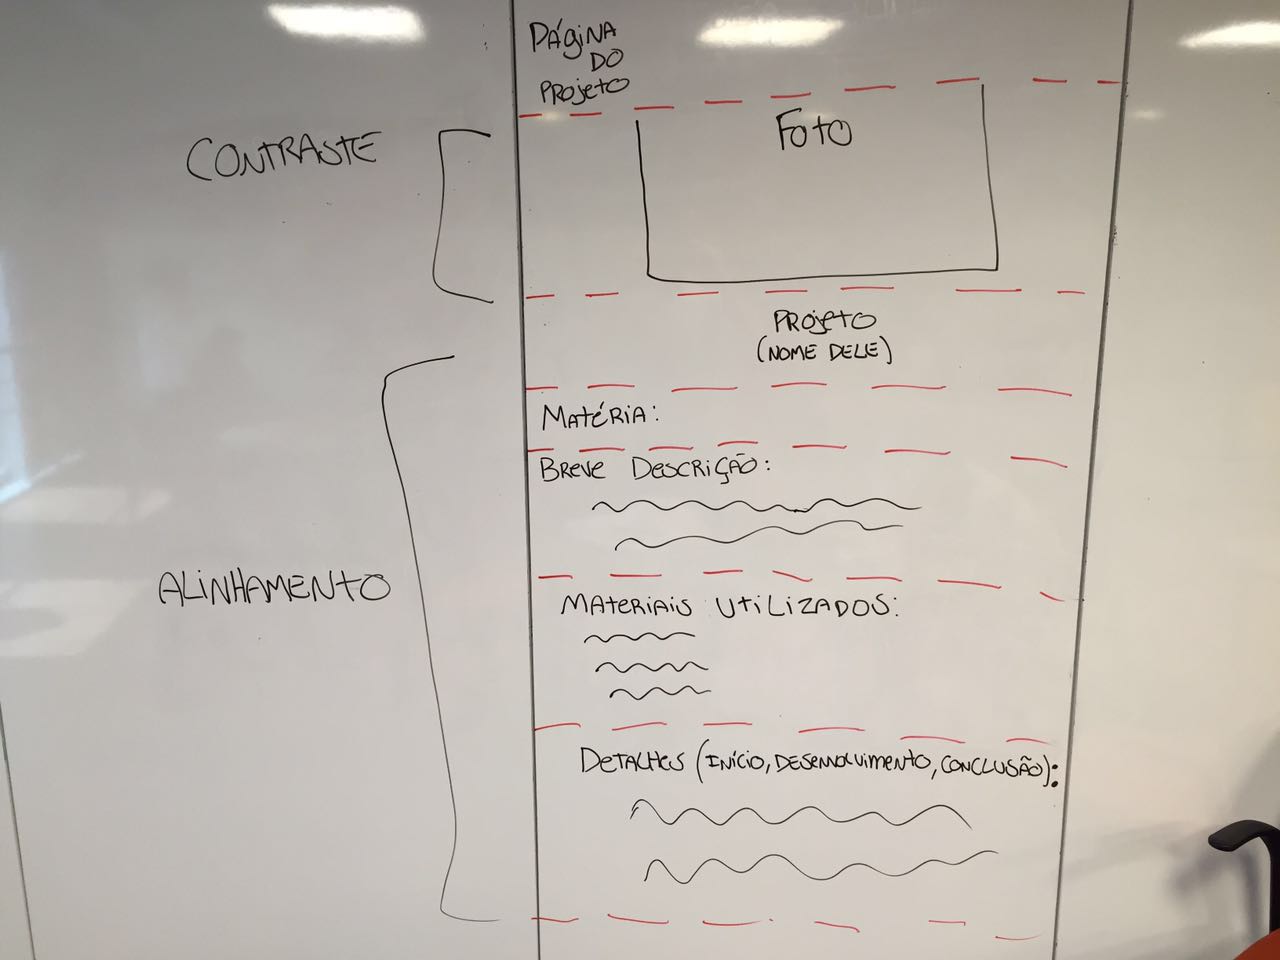 Página
do
Projeto
Contraste
Foto
Projeto
(nome dele)
Matéria:
Breve Descrição:
Alinhamento
Materiais utilizados:
Detalhes (Início, desenvolvimento, conclusão):